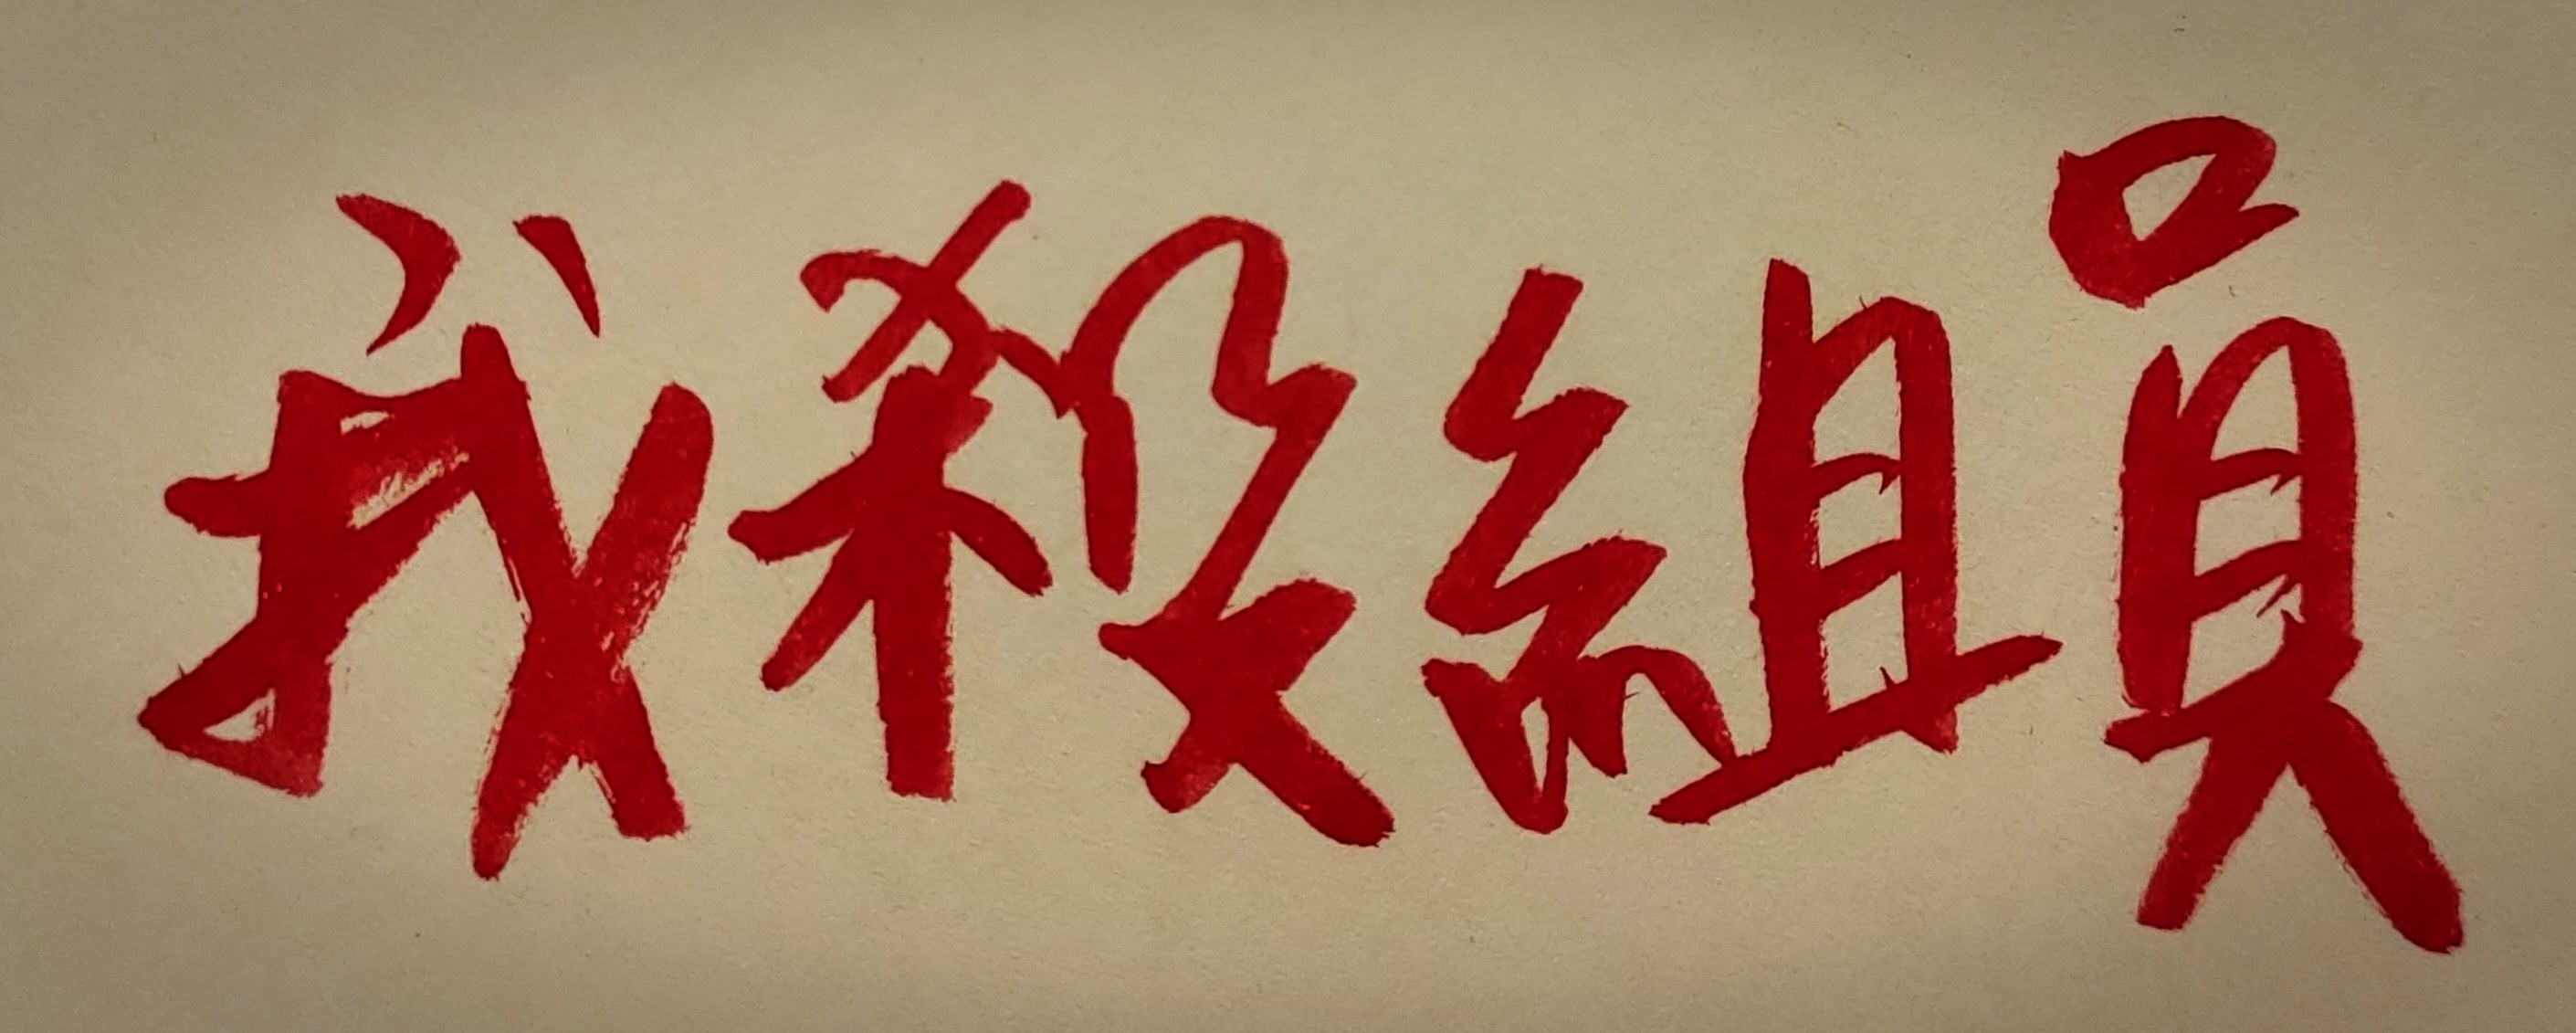 我殺組員